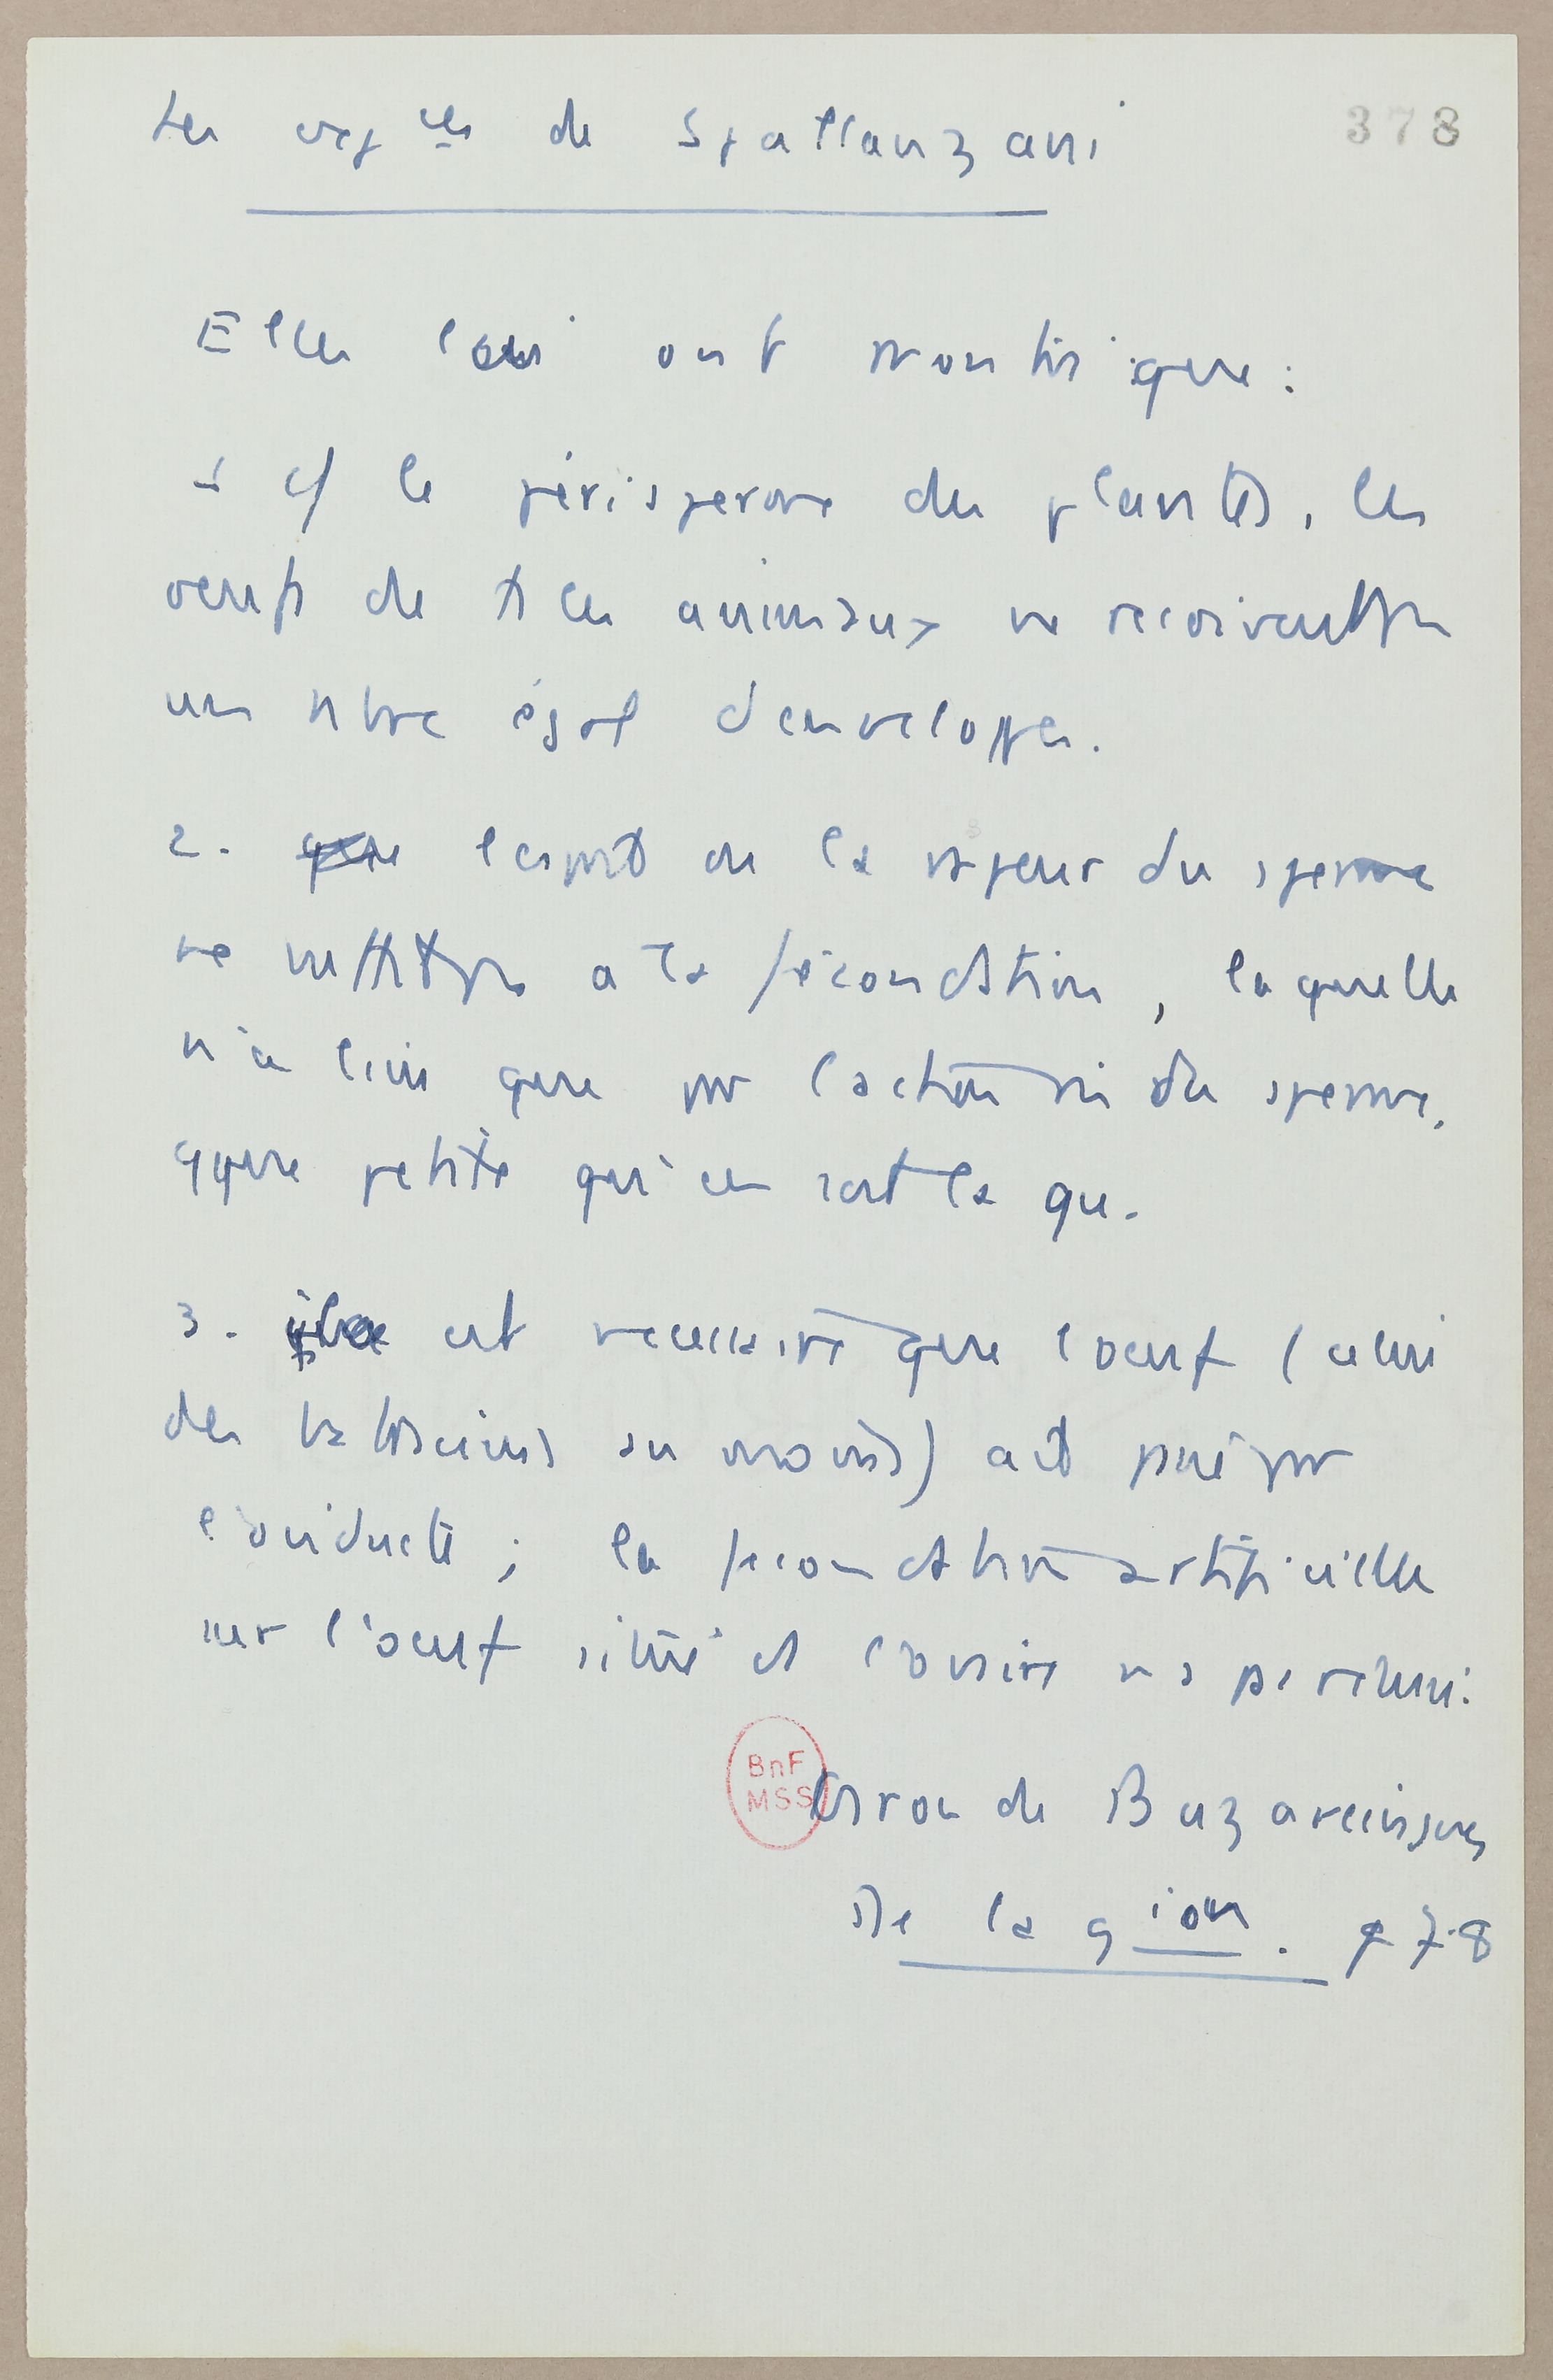 Les expces de Spallanzani
378
Elles lui ont montré que :
1 c/ le périsperme des plantes, les
oeufs de ts les animaux ne reçoivent pas
un nbre égal d'enveloppes.
2. que l'esprit ou la vapeur du sperme
ne suffit pas à la fécondation, laquelle
n'a lieu que par l'action du sperme,
qque petite qu'en soit la qu.
3. est nécessaire que l'oeuf (celui
des batraciens au moins) ait passé par
l'oviducte ; la fécondation artificielle
sur l'oeuf situé ds l'ovaire n'a pas réussi.
BnF
MSS
Giron de Buzareingues
De la gion. p 7.8